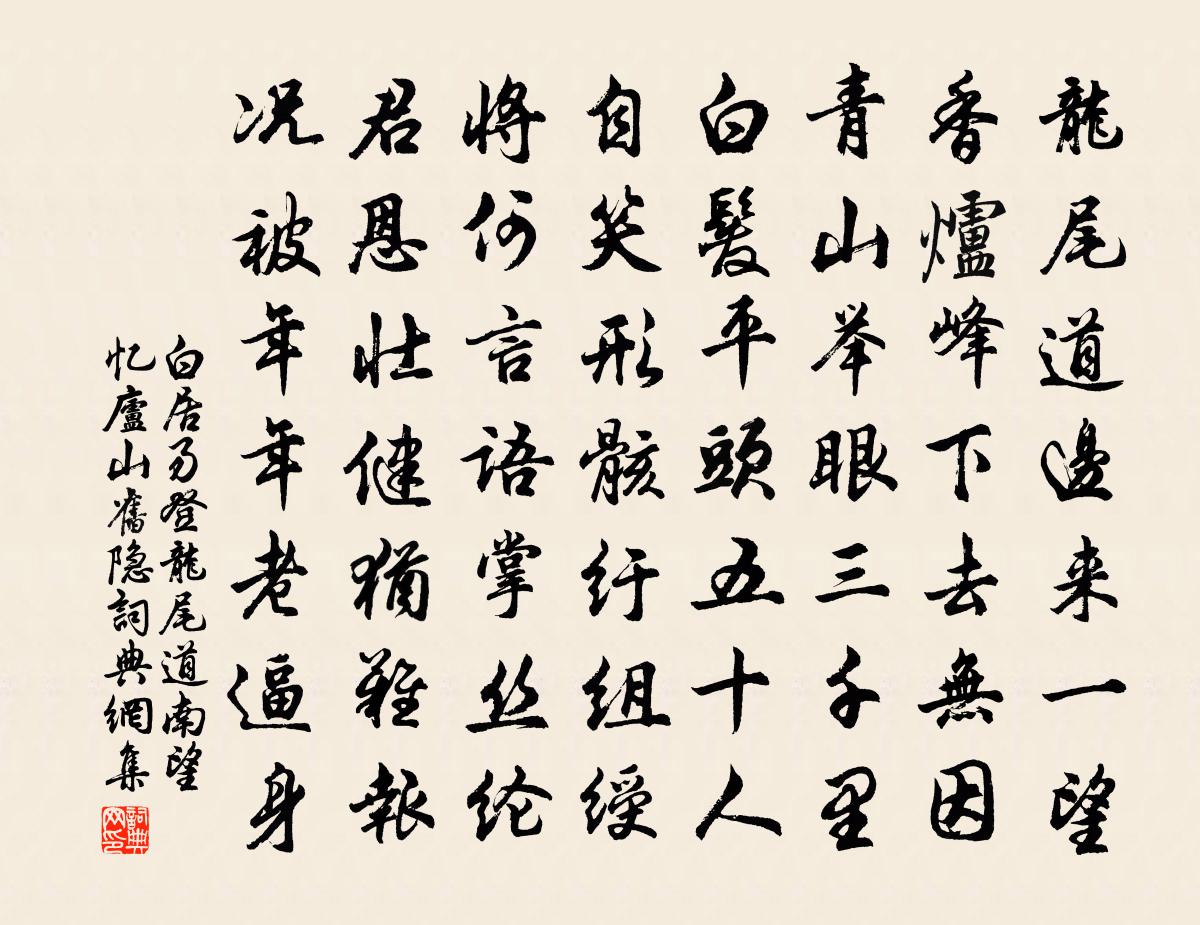 龍尾道邊来一望
香爐峰下去無因
青山举眼三千里
白髮平頭五十人
自笑形骸纡組綬
将何言語掌丝纶
君恩壮健猶難報
况被年年老逼身
白居易登龍尾道南望
忆廬山舊隐詞典網集
詞典网印